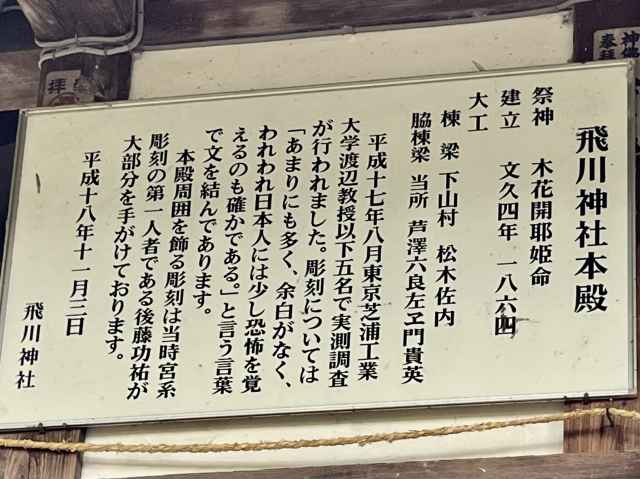 飛川神社本殿
祭神 木花開耶姫命
建立 文久四年 一八六四
大工
棟梁 下山村 松木佐内
脇棟梁 当所 芦澤六良左ヱ門貴英
平成十七年八月東京芝浦工業
大学渡辺教授以下五名で実測調査
が行われました。彫刻については
「あまりにも多く、余白がなく、
われわれ日本人には少し恐怖を覚
えるのも確かである。」と言う言葉
で文を結んであります。
本殿周囲を飾る彫刻は当時宮系
彫刻の第一人者である後藤功祐が
大部分を手がけております。
平成十八年十一月三日
飛川神社